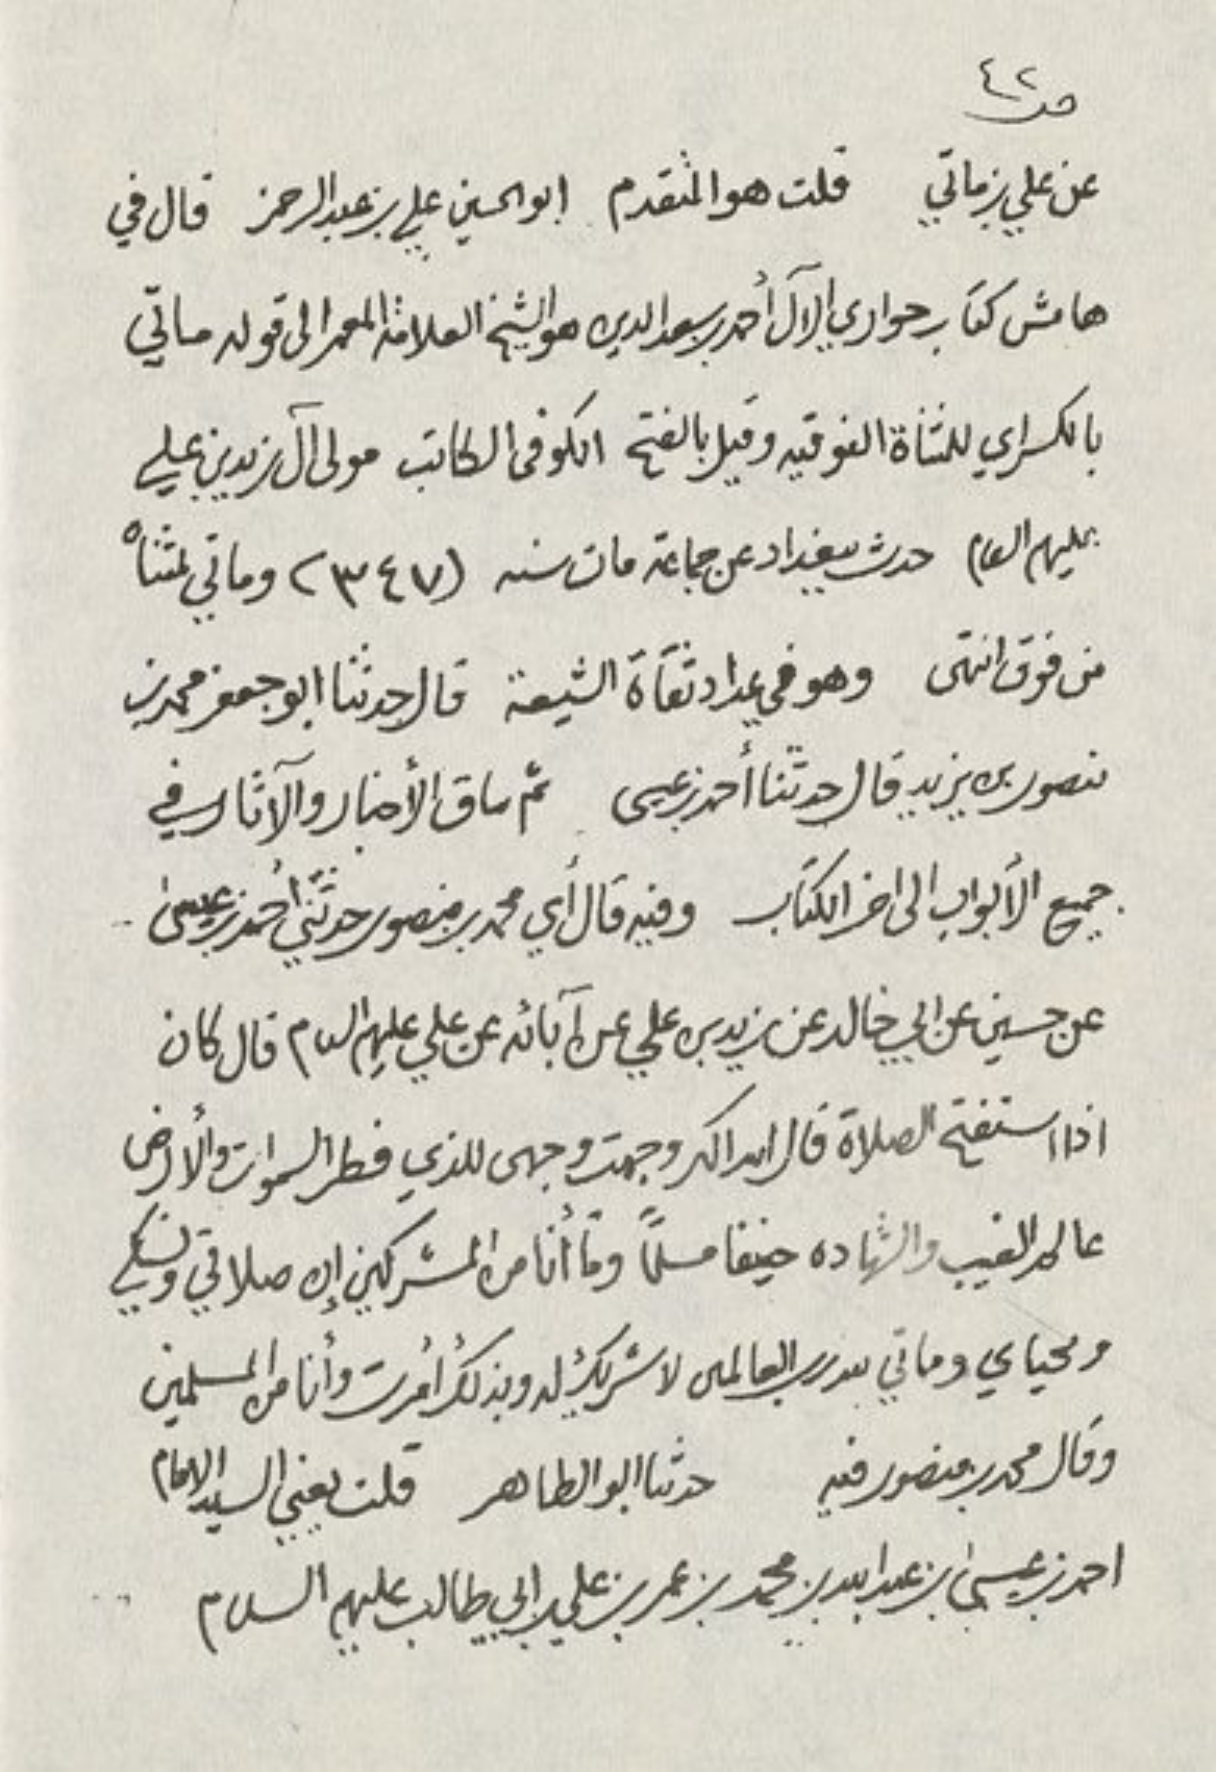 ص ٤٢
عن علي بن ماتي قلت هو المتقدم ابو الحسين علي بن عبد الرحمن قال في
هامش كتاب حواري الآل أحمد بن سعد الدين هو الشيخ العلامة المعمر الى قوله ماتي
بالكسر اي للمثناة الفوقيه وقيل بالفتح الكوفي الكاتب مولى آل زيد بن علي
عليهم السلام حدث ببغداد عن جماعة مات سنه (٣٤٧) وماتي لمثناه
من فوق انتهى وهو في عداد ثقاة الشيعة قال حدثنا ابو جعفر محمد بن
منصور بن يزيد قال حدثنا أحمد بن عيسى ثم ساق الأخبار والآثار في
جميع الأبواب الى اخر الكتاب وفيه قال أي محمد بن منصور حدثني أحمد بن عيسى
عن حسين عن ابي خالد عن زيد بن علي عن آبائه عن علي عليهم السلام قال كان
اذا استفتح الصلاة قال الله اكبر وجهت وجهي للذي فطر السموات والأرض
عالم الغيب والشهاده حنيفا مسلماً وما أنا من المشركين إن صلاتي ونسكي
ومحياي ومماتي لله رب العالمين لا شريك له وبذلك أمرت وأنا من المسلمين
وقال محمد بن منصور فيه حدثنا ابو الطاهر قلت يعني السيد الامام
احمد بن عيسى بن عبد الله بن محمد بن عمر بن علي بن ابي طالب عليهم السلام